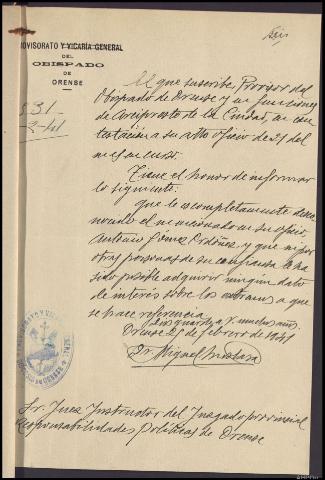 seis
PROVISORATO Y VICARÍA GENERAL
DEL
OBISPADO
DE
ORENSE
El que suscribe Provisor del
Obispado de Orense y en funciones
de Arcipreste de la Ciudad, en con
testación a su atto oficio de 21 del
mes en curso.
Tiene el honor de informar
lo siguiente:
que le es completamente desco
nocido el mencionado en su oficio
Antonio Gómez Ordóñez y que ni por
otras personas de su confianza le ha
sido posible adquirir ningún dato
de interés sobre los extremos a que
se hace referencia.
Dios guarde a V. muchos años.
Orense 27 de febrero de 1941
Dr. Miguel
Sr. Juez Instructor del Juzgado provincial
Responsabilidades Políticas de Orense